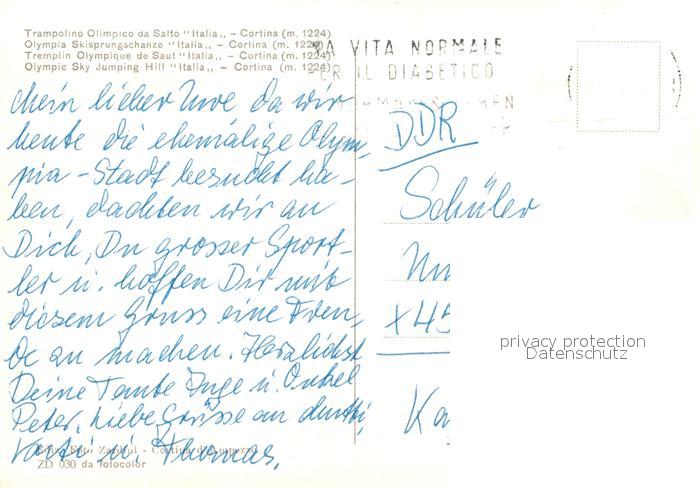 Trampolino Olimpico da Salto "Italia,, – Cortina (m. 1224)
Olympia Skisprungschanze "Italia,, – Cortina (m. 1224)
Tremplin Olympique de Saut "Italia,, – Cortina (m. 1224)
Olympic Sky Jumping Hill "Italia,, – Cortina (m. 1224)
VITA NORMALE
IL DIABETICO
Mein lieber Uwe da wir
heute die ehemalige Olym-
pia-Stadt besucht ha-
ben, dachten wir an
Dich, Du grosser Sport-
ler u. hoffen Dir mit
diesem Gruss eine Freu-
de zu machen. Herzlichst
Deine Tante Inge u. Onkel
Peter. Liebe Grüsse an
Vati u. Thomas.
DDR
Schüler
X 45
Ka
Foto Zardini - Cortina d'Ampezzo
ZD 030 da fotocolor
privacy protection
Datenschutz